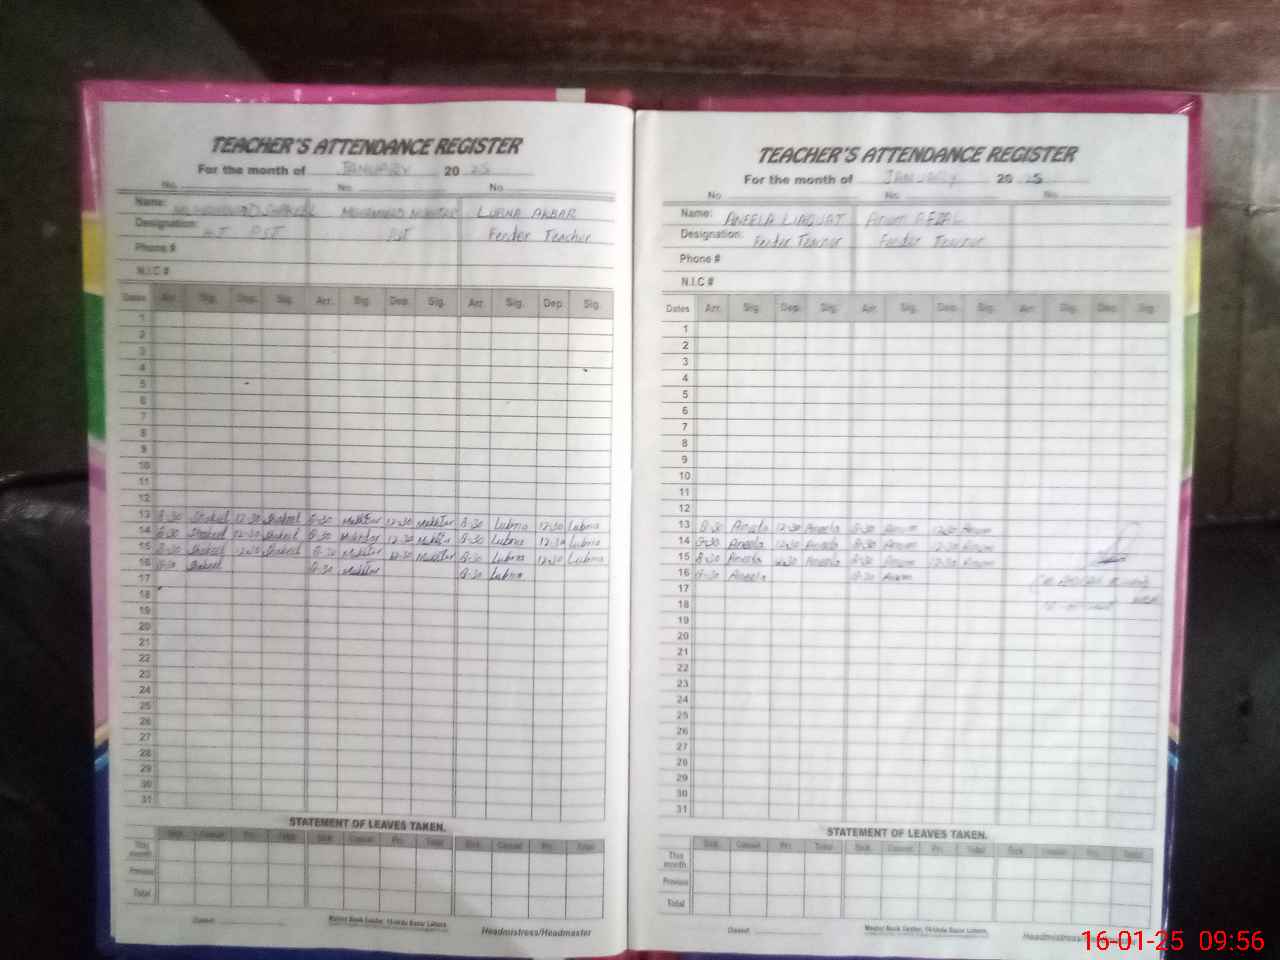 TEACHER'S ATTENDANCE REGISTER
For the month of JANUARY 20 25
No. No. No.
Name: MUHAMMAD SHAKEEL MUHAMMAD MUKHTAR LUBNA AKBAR
Designation: HT PST PST Fender Teacher
Phone #
N.I.C #
Dates Arr. Sig. Dep. Sig. Arr. Sig. Dep. Sig. Arr. Sig. Dep. Sig.
1
2
3
4
5
6
7
8
9
10
11
12
13 8-30 Shakeel 12-30 Shakeel 8-30 Mukhtar 12-30 Mukhtar 8-30 Lubna 12-30 Lubna
14 8-30 Shakeel 12-30 Shakeel 8-30 Mukhtar 12-30 Mukhtar 8-30 Lubna 12-30 Lubna
15 8-30 Shakeel 12-30 Shakeel 8-30 Mukhtar 12-30 Mukhtar 8-30 Lubna 12-30 Lubna
16 8-30 Shakeel 8-30 Mukhtar 8-30 Lubna
17
18
19
20
21
22
23
24
25
26
27
28
29
30
31
STATEMENT OF LEAVES TAKEN.
Sick Casual Pri. Total Sick Casual Pri. Total Sick Casual Pri. Total
This month
Previous
Total
Dated:
Master Book Center, 14-Urdu Bazar Lahore.
Headmistress/Headmaster
TEACHER'S ATTENDANCE REGISTER
For the month of JANUARY 20 25
No. No. No.
Name: ANEELA LIAQUAT Anum AFZAL
Designation: Fender Teacher Fender Teacher
Phone #
N.I.C #
Dates Arr. Sig. Dep. Sig. Arr. Sig. Dep. Sig. Arr. Sig. Dep. Sig.
1
2
3
4
5
6
7
8
9
10
11
12
13 8-30 Aneela 12-30 Aneela 8-30 Anum 12-30 Anum
14 8-30 Aneela 12-30 Aneela 8-30 Anum 12-30 Anum
15 8-30 Aneela 12-30 Aneela 8-30 Anum 12-30 Anum
16 8-30 Aneela 8-30 Anum
17
18
19
20
21
22
23
24
25
26
27
28
29
30
31
STATEMENT OF LEAVES TAKEN.
Sick Casual Pri. Total Sick Casual Pri. Total Sick Casual Pri. Total
This month
Previous
Total
Dated:
Master Book Center, 14-Urdu Bazar Lahore.
Headmistress/Headmaster
16-01-25 09:56